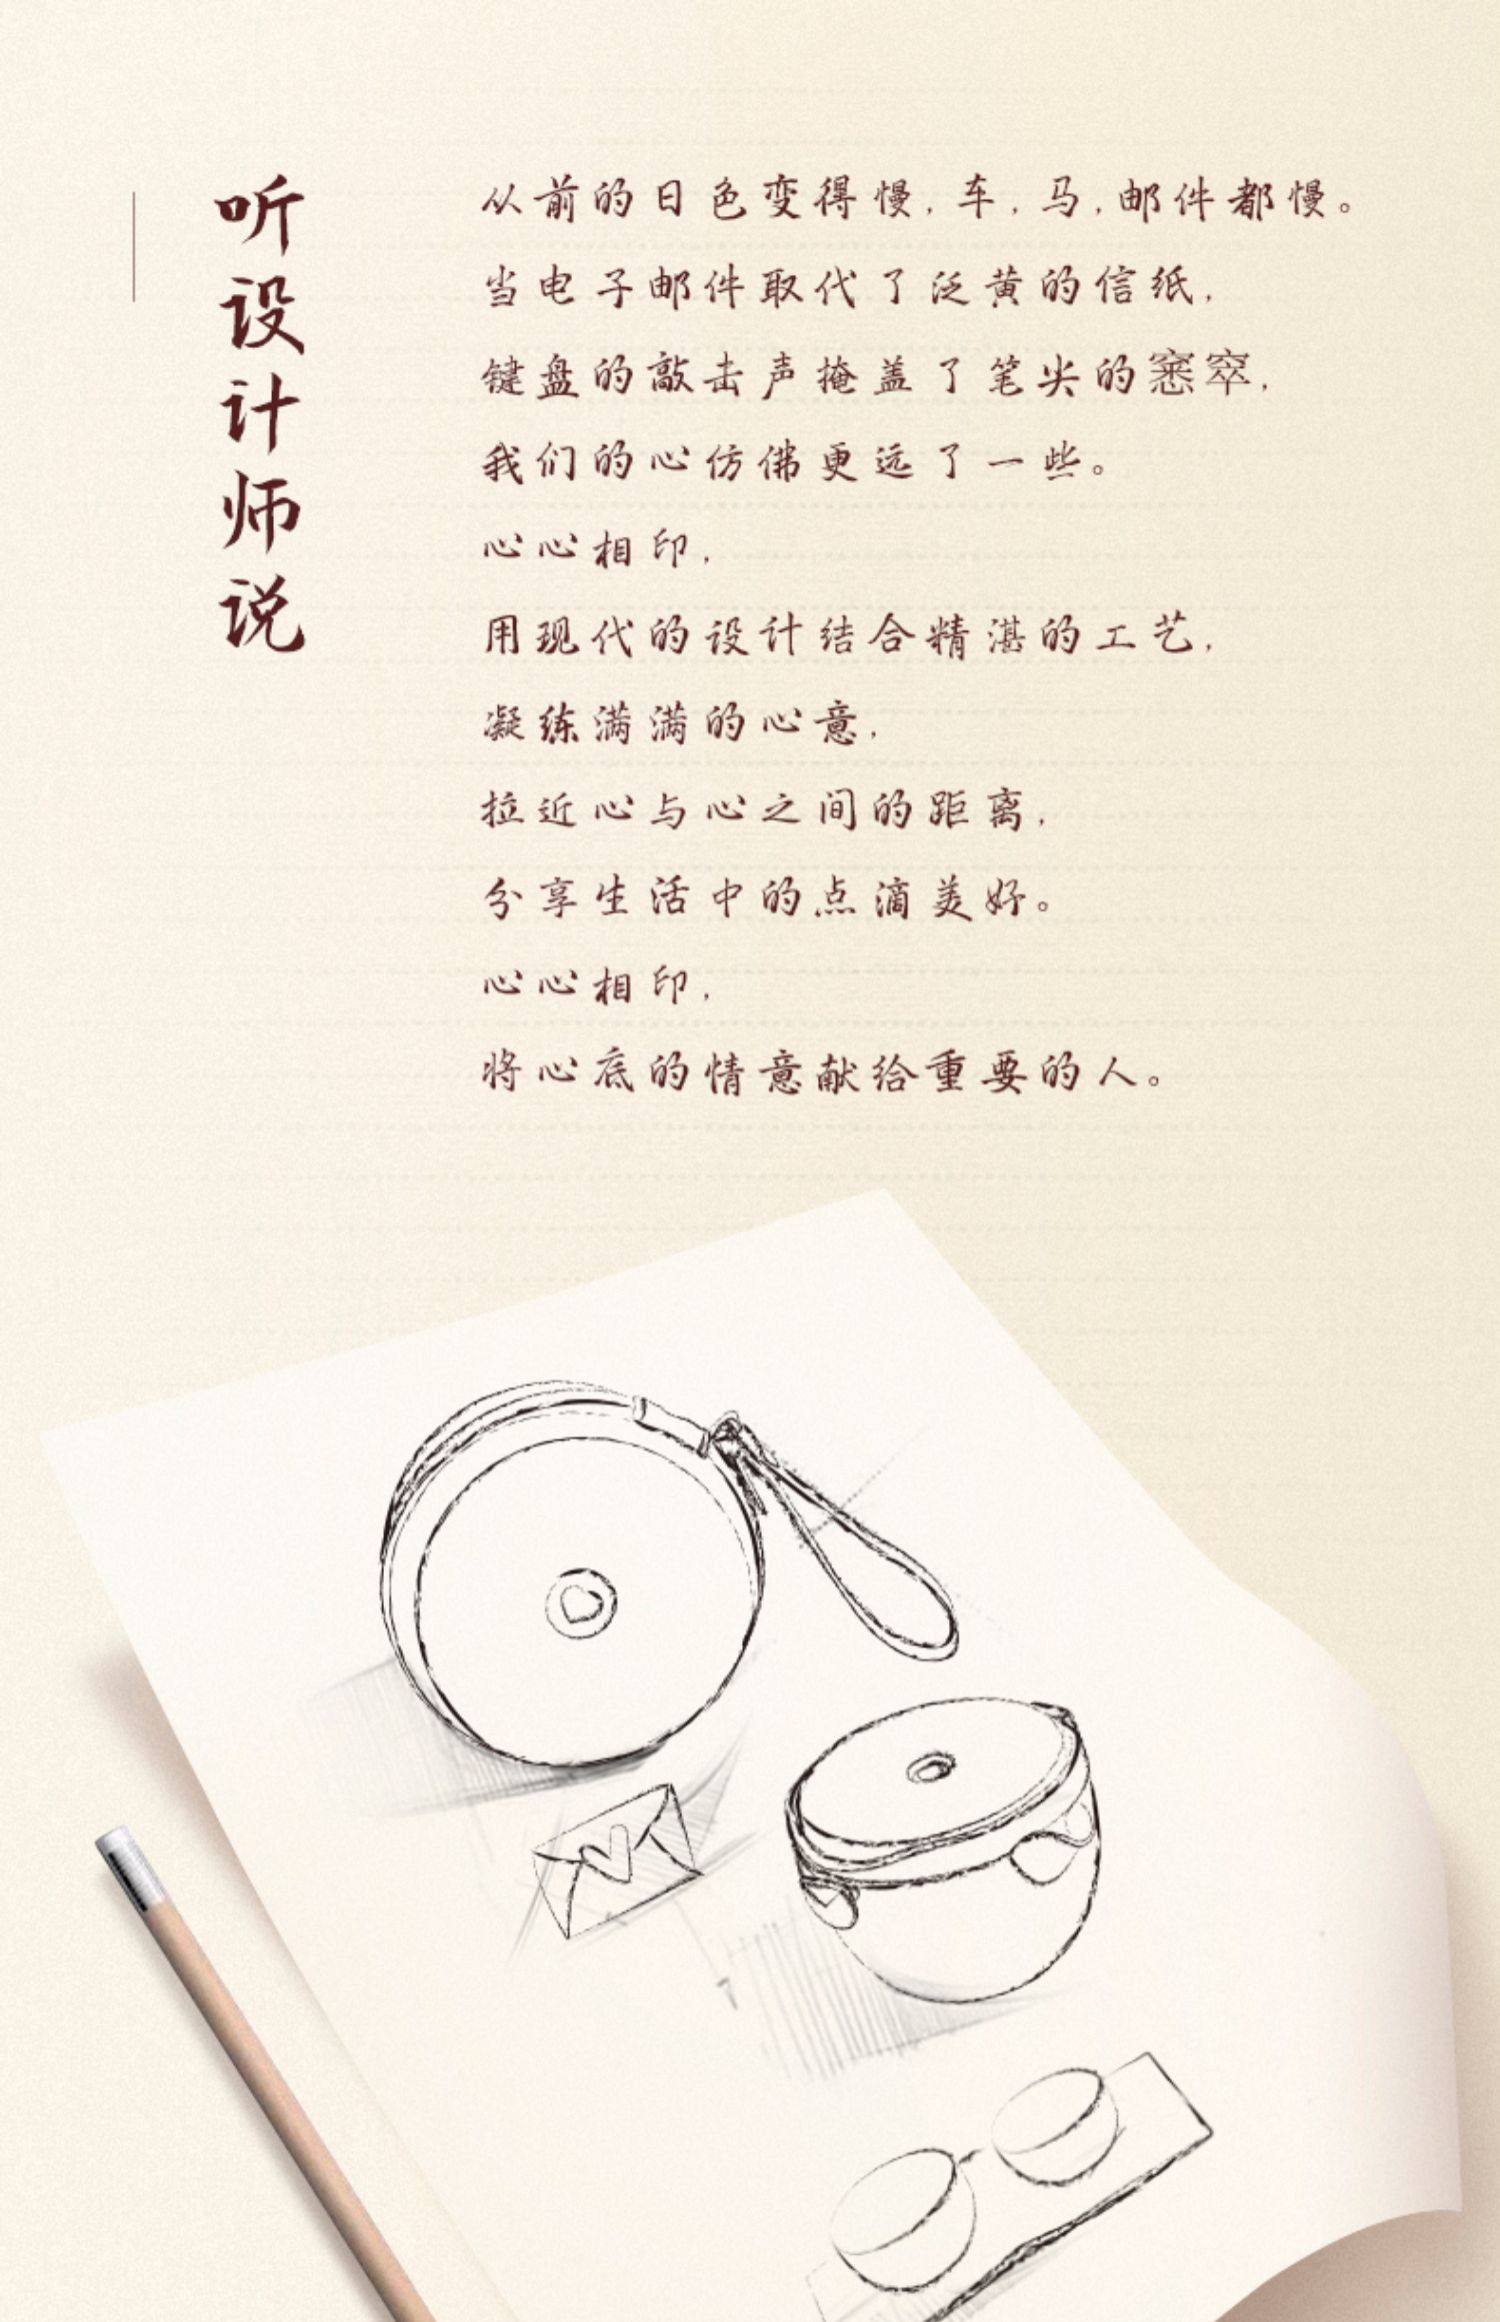 听设计师说
从前的日色变得慢，车，马，邮件都慢。
当电子邮件取代了泛黄的信纸，
键盘的敲击声掩盖了笔尖的窸窣，
我们的心仿佛更远了一些。
心心相印，
用现代的设计结合精湛的工艺，
凝练满满的心意，
拉近心与心之间的距离，
分享生活中的点滴美好。
心心相印，
将心底的情意献给重要的人。